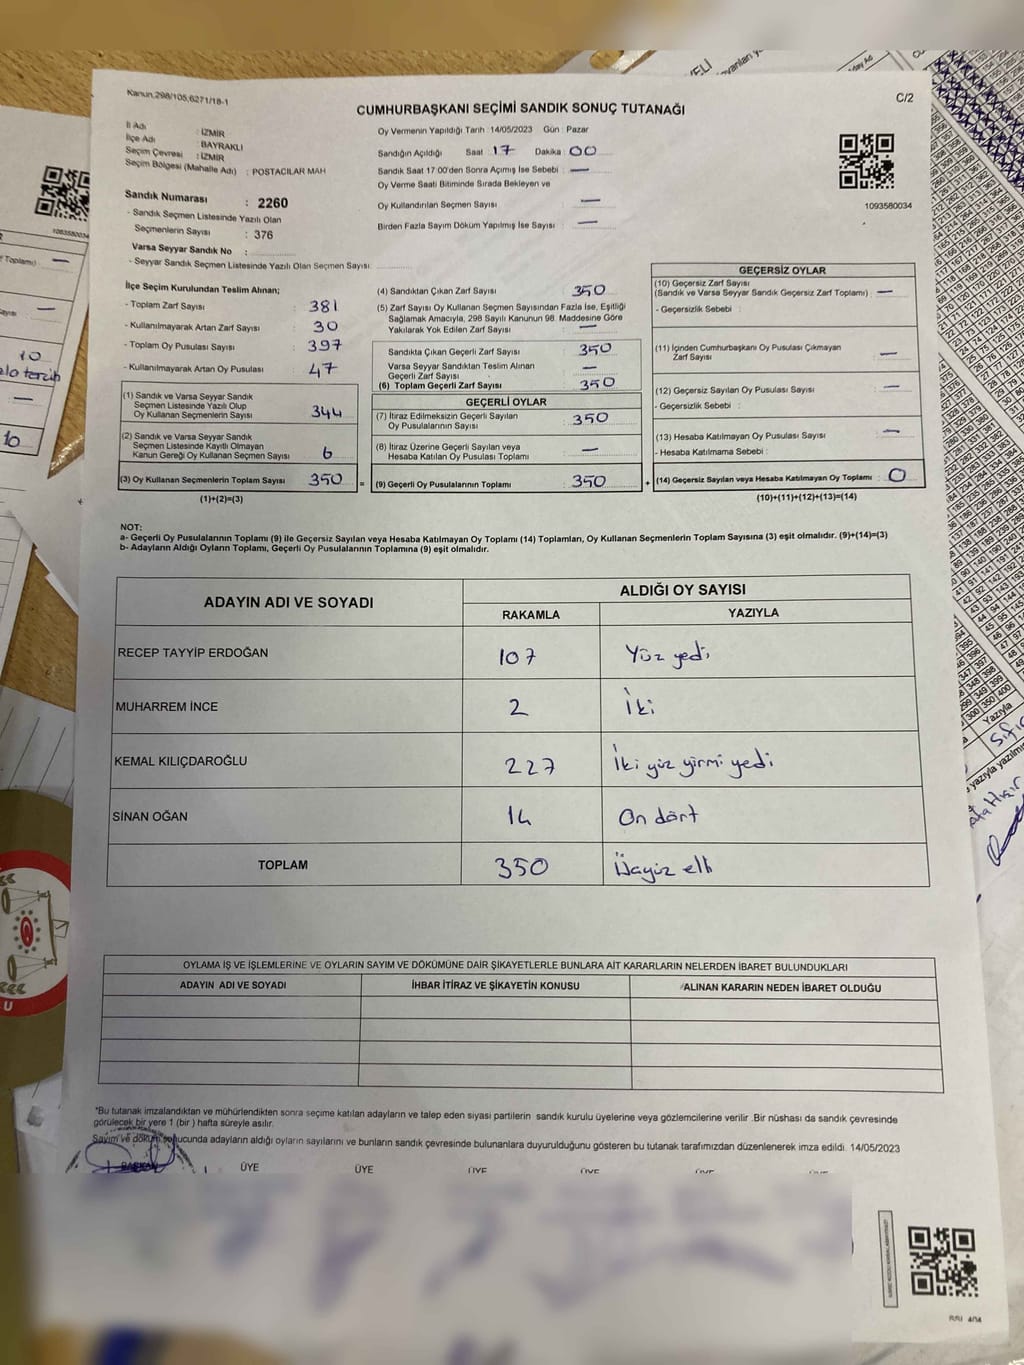 Kanun,298/105;6271/18-1
CUMHURBAŞKANI SEÇİMİ SANDIK SONUÇ TUTANAĞI
C/2
İl Adı : İZMİR
İlçe Adı : BAYRAKLI
Seçim Çevresi : İZMİR
Seçim Bölgesi (Mahalle Adı) : POSTACILAR MAH
Sandık Numarası : 2260
- Sandık Seçmen Listesinde Yazılı Olan
Seçmenlerin Sayısı : 376
Varsa Seyyar Sandık No :
- Seyyar Sandık Seçmen Listesinde Yazılı Olan Seçmen Sayısı:
Oy Vermenin Yapıldığı Tarih :14/05/2023 Gün : Pazar
Sandığın Açıldığı Saat 17 Dakika 00
Sandık Saat 17:00'den Sonra Açımış İse Sebebi : —
Oy Verme Saati Bitiminde Sırada Bekleyen ve
Oy Kullandırılan Seçmen Sayısı —
Birden Fazla Sayım Döküm Yapılmış İse Sayısı : —
1093580034
İlçe Seçim Kurulundan Teslim Alınan;
- Toplam Zarf Sayısı : 381
- Kullanılmayarak Artan Zarf Sayısı : 30
- Toplam Oy Pusulası Sayısı : 397
- Kullanılmayarak Artan Oy Pusulası : 47
(1) Sandık ve Varsa Seyyar Sandık
Seçmen Listesinde Yazılı Olup
Oy Kullanan Seçmenlerin Sayısı : 344
(2) Sandık ve Varsa Seyyar Sandık
Seçmen Listesinde Kayıtlı Olmayan
Kanun Gereği Oy Kullanan Seçmen Sayısı : 6
(3) Oy Kullanan Seçmenlerin Toplam Sayısı : 350
(1)+(2)=(3)
=
(4) Sandıktan Çıkan Zarf Sayısı : 350
(5) Zarf Sayısı Oy Kullanan Seçmen Sayısından Fazla İse, Eşitliği
Sağlamak Amacıyla, 298 Sayılı Kanunun 98. Maddesine Göre
Yakılarak Yok Edilen Zarf Sayısı : —
Sandıkta Çıkan Geçerli Zarf Sayısı : 350
Varsa Seyyar Sandıktan Teslim Alınan
Geçerli Zarf Sayısı : —
(6) Toplam Geçerli Zarf Sayısı : 350
GEÇERLİ OYLAR
(7) İtiraz Edilmeksizin Geçerli Sayılan
Oy Pusulalarının Sayısı : 350
(8) İtiraz Üzerine Geçerli Sayılan veya
Hesaba Katılan Oy Pusulası Toplamı : —
(9) Geçerli Oy Pusulalarının Toplamı : 350
+
GEÇERSİZ OYLAR
(10) Geçersiz Zarf Sayısı
(Sandık ve Varsa Seyyar Sandık Geçersiz Zarf Toplamı) : —
- Geçersizlik Sebebi :
(11) İçinden Cumhurbaşkanı Oy Pusulası Çıkmayan
Zarf Sayısı : —
(12) Geçersiz Sayılan Oy Pusulası Sayısı : —
- Geçersizlik Sebebi :
(13) Hesaba Katılmayan Oy Pusulası Sayısı : —
- Hesaba Katılmama Sebebi :
(14) Geçersiz Sayılan veya Hesaba Katılmayan Oy Toplamı : 0
(10)+(11)+(12)+(13)=(14)
NOT:
a- Geçerli Oy Pusulalarının Toplamı (9) ile Geçersiz Sayılan veya Hesaba Katılmayan Oy Toplamı (14) Toplamları, Oy Kullanan Seçmenlerin Toplam Sayısına (3) eşit olmalıdır. (9)+(14)=(3)
b- Adayların Aldığı Oyların Toplamı, Geçerli Oy Pusulalarının Toplamına (9) eşit olmalıdır.
ADAYIN ADI VE SOYADI
ALDIĞI OY SAYISI
RAKAMLA YAZIYLA
RECEP TAYYİP ERDOĞAN 107 Yüz yedi
MUHARREM İNCE 2 İki
KEMAL KILIÇDAROĞLU 227 İki yüz yirmi yedi
SİNAN OĞAN 14 On dört
TOPLAM 350 Üçyüz elli
OYLAMA İŞ VE İŞLEMLERİNE VE OYLARIN SAYIM VE DÖKÜMÜNE DAİR ŞİKAYETLERLE BUNLARA AİT KARARLARIN NELERDEN İBARET BULUNDUKLARI
ADAYIN ADI VE SOYADI İHBAR İTİRAZ VE ŞİKAYETİN KONUSU ALINAN KARARIN NEDEN İBARET OLDUĞU
*Bu tutanak imzalandıktan ve mühürlendikten sonra seçime katılan adayların ve talep eden siyasi partilerin sandık kurulu üyelerine veya gözlemcilerine verilir .Bir nüshası da sandık çevresinde
görülecek bir yere 1 (bir ) hafta süreyle asılır.
Sayım ve döküm sonucunda adayların aldığı oyların sayılarını ve bunların sandık çevresinde bulunanlara duyurulduğunu gösteren bu tutanak tarafımızdan düzenlenerek imza edildi. 14/05/2023
BAŞKAN ÜYE ÜYE ÜYE ÜYE ÜYE ÜYE